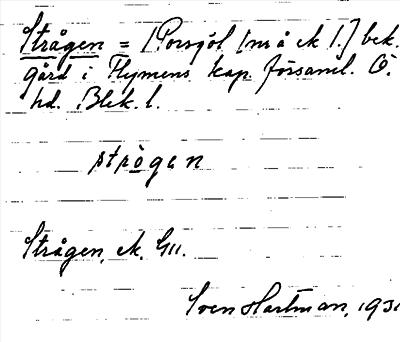 Strågen = [Porsgöl [nr å ek 1.] bek.
gård i Flymens kap. församl. Ö.
hd. Blek. l.
strògen
Strågen, ek. GU.
Sven Hartman, 193